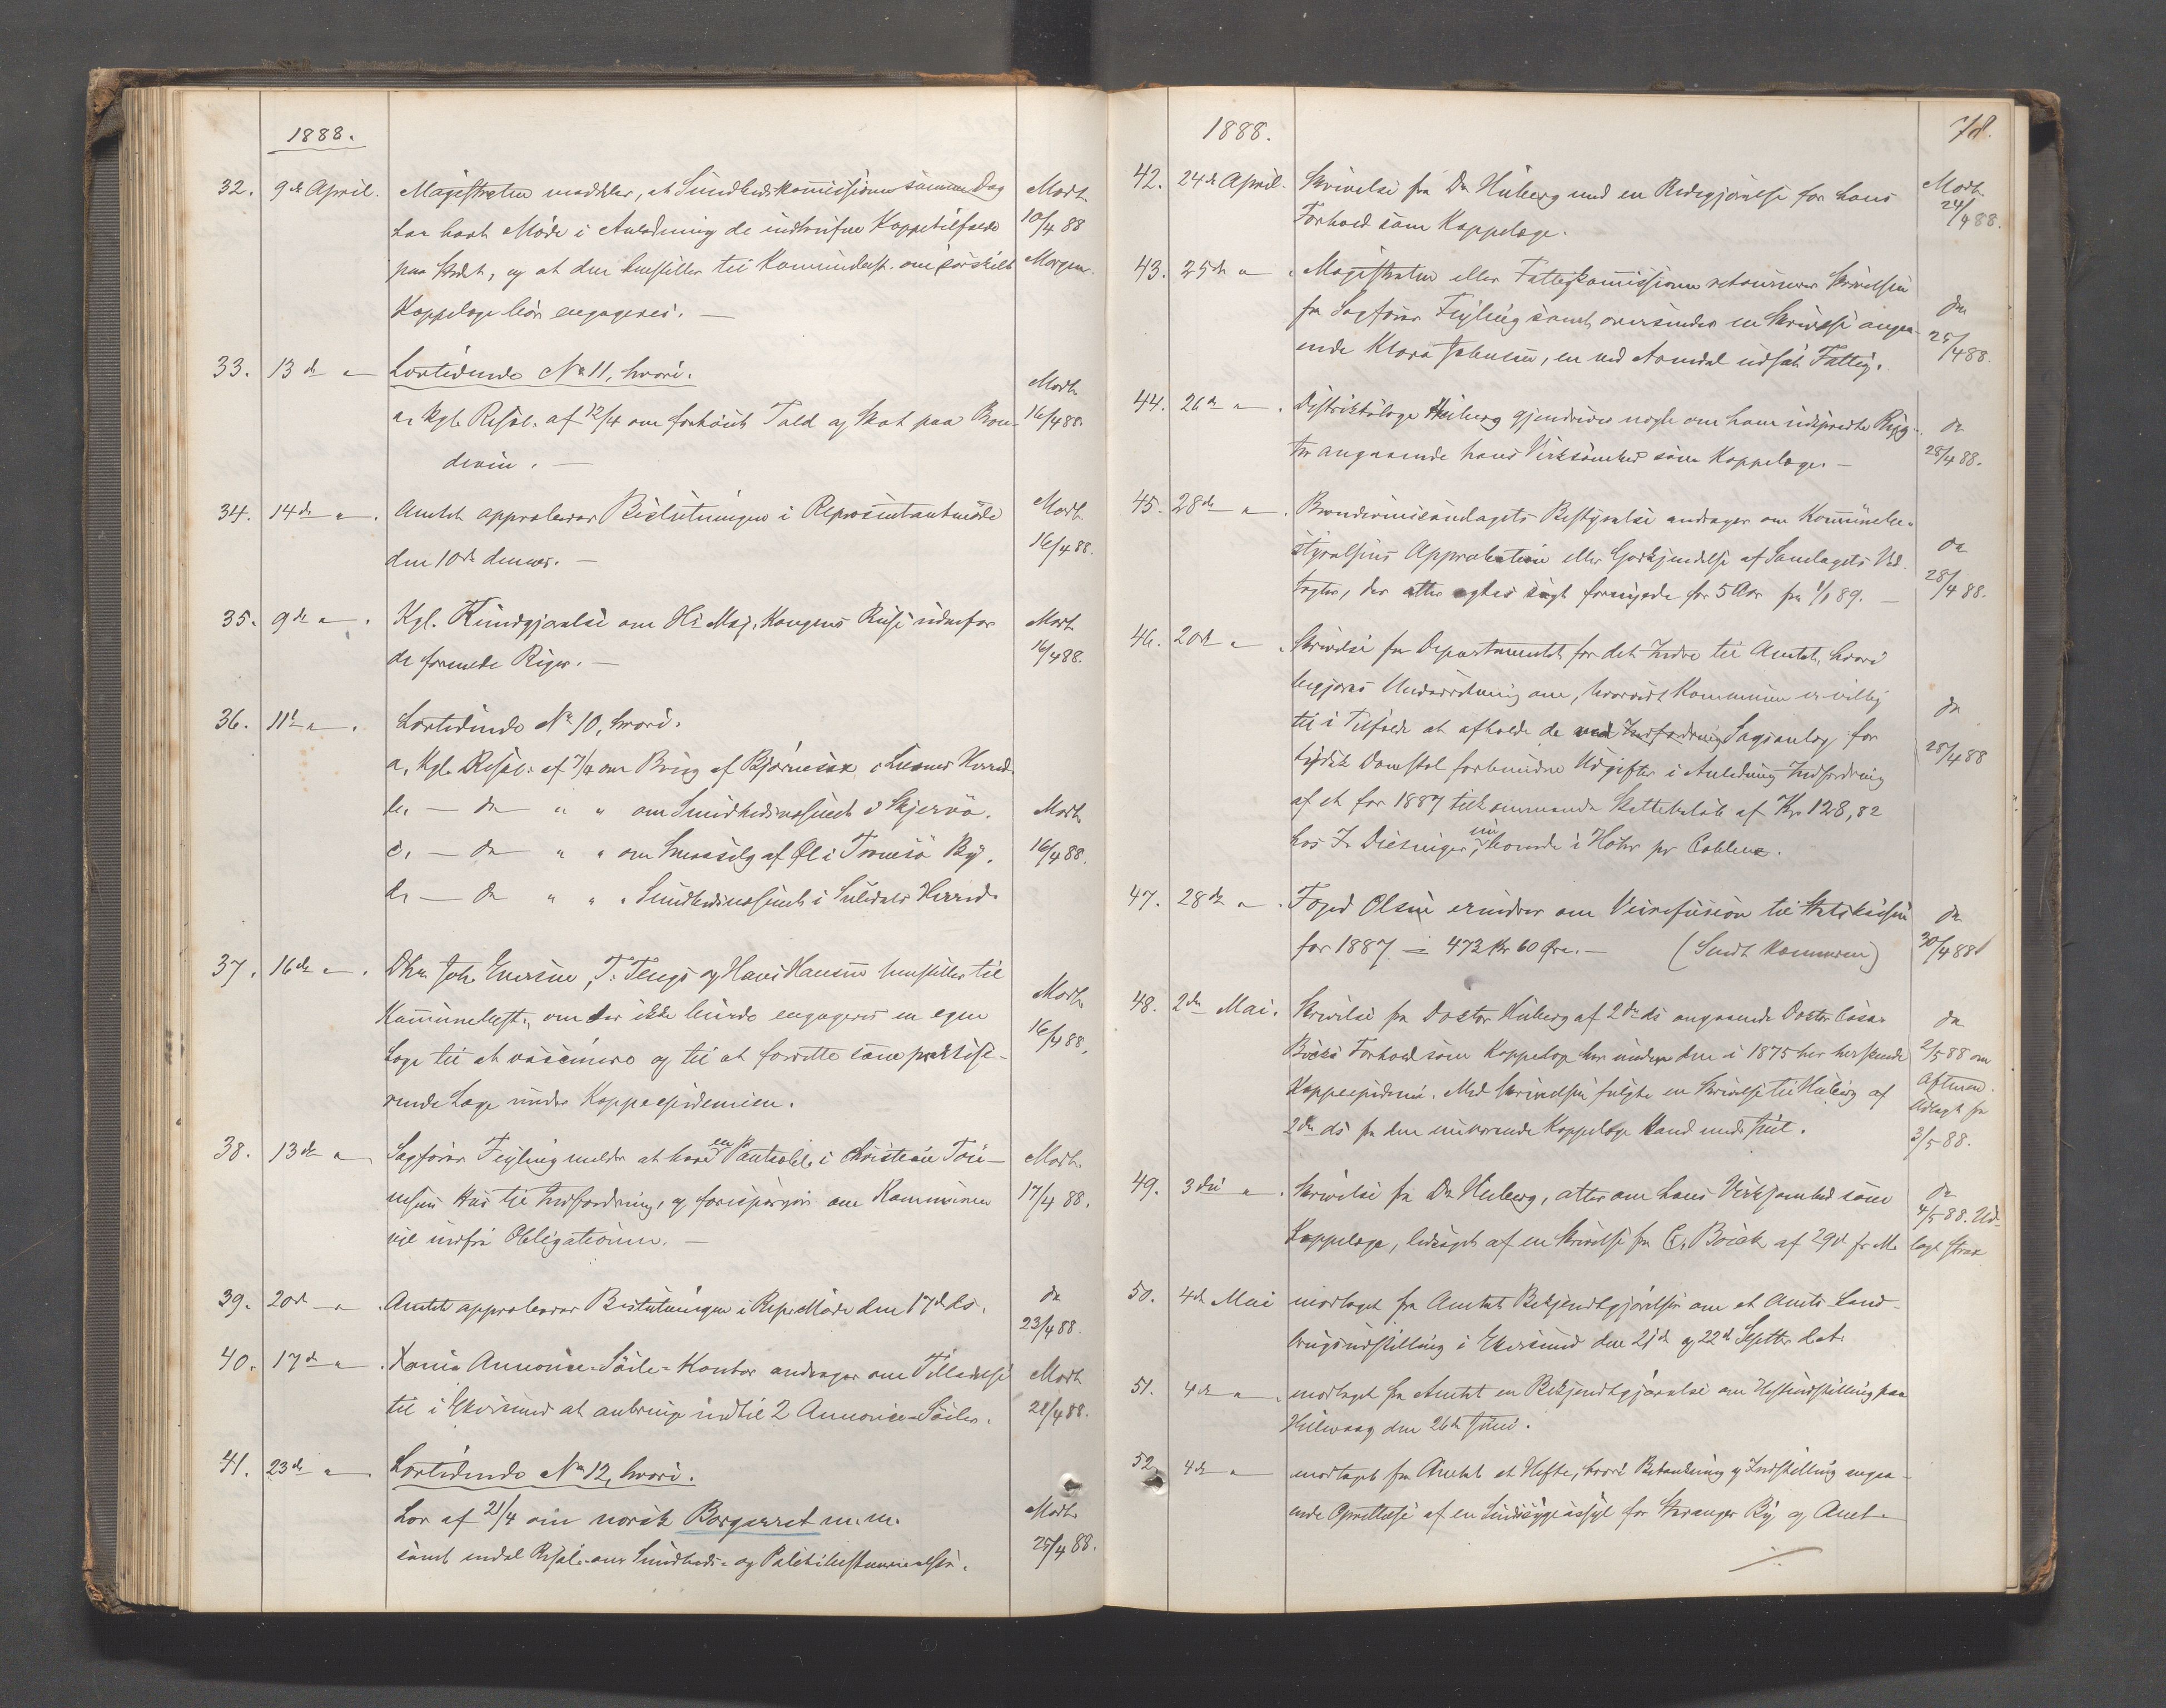 1888.
32. 9de April. Magistraten meddeler, at Sundhedskommissionen samme Dag Modt.
har havt Møde i Anledning de indtrufne Koppetilfælde 10/4 88
paa Stedet, og at den henstiller til Kommunebest. om særskilt Morgen.
Koppelæge bør engageres. —
33. 13de " Lovtidende No 11, hvori. Modt.
a, kgl. Resol. af 12/4 om forhøiet Told og Skat paa Bræn- 16/4 88.
devin. —
34. 14de " . Amtet approberer Beslutningen i Repræsentantmøde Modt.
den 10de dennes. — 16/4 88.
35. 9de " . Kgl. Kundgjørelse om Hs Maj. Kongens Reise udenfor Modt.
de forenede Riger. — 16/4 88.
36. 11te " . Lovtidende No 10, hvori.
a, Kgl. Resol. af 7/4 om Brug af Bjørnesax i Lierne Herred.
b, — do " " om Sundhedsvæsenet i Skjervø. Modt.
c, — do " " om Smaasalg af Øl i Tromsø By. 16/4 88.
d, — do " " " Sundhedsvæsenet i Suledals Herred.
37. 16de " . Dhr. Joh. Eversen, T. Tengs og Hans Hansen henstiller til
Kommunebest., om der ikke burde engageres en egen Modt.
Læge til at vaccinere og til at forrette som praktise- 16/4 88.
rende Læge under Koppeepidemien.
38. 13de " Sagfører Feyling melder at have en Panteobl. i Christian Tøn- Modt.
nesens Hus til Indfordring, og forespørger om Kommunen 17/4 88.
vil indfri Obligationen. —
39. 20de " . Amtet approberer Beslutningen i Rep. Møde den 17de ds. do
23/4 88.
40. 17de " . Xania Annonce-Søile-Kontor andrager om Tilladelse Modt
til i Ekersund at anbringe indtil 2 Annonce-Søiler. 21/4 88.
41. 23de " . Lovtidende No 12, hvori.
Lov af 21/4 om norsk Borgerret m. m. Modt.
samt endel Resol. om Sundheds- og Politibestemmelser. 25/4 88.
1888. 78.
42. 24de April. Skrivelse fra Dr. Huberg med en Redegjørelse for hans Modt.
Forhold som Koppelæge. 24/4 88.
43. 25de " . Magistraten eller Fattigkommissionen retournerer Skrivelsen
fra Sagfører Feyling samt oversender en Skrivelse angaa- do
ende Klara Johnsen, en ved Arendal udsat Fattig. 25/4 88.
44. 26de " . Distriktslæge Huberg gjendriver nogle om ham udspredte Ryg- do
ter angaaende hans Virksomhed som Koppelæge. — 28/4 88.
45. 28de " . Brændevinssamlagets Bestyrelse andrager om Kommunebe-
styrelsens Approbation eller Godkjendelse af Samlagets Ved- do
tægter, der atter agtes søgt fornyede for 5 Aar fra 1/1 89. — 28/4 88.
46. 20de " . Skrivelse fra Departementet for det Indre til Amtet, hvori
begjæres Underretning om, hvorvidt Kommunen er villig
til i Tilfælde at afholde de ved Indfordring Sagsanlæg for do
tydsk Domstol forbundne Udgifter i Anledning Indfordring 28/4 88
af et for 1887 tilkommende Skattebeløb af Kr. 128,82
hos J. Diesinger, nu boende i Höhr pr Coblenz.
47. 28de " . Foged Olsen erindrer om Veirefusion til Statskassen do
for 1887 = 473 Kr 60 Øre. — (Sendt Kæmneren) 30/4 88
48. 2den Mai. Skrivelse fra Doctor Huberg af 2den ds angaaende Doctor Cæsar do
Boecks Forhold som Koppelæge her under den i 1875 her herskende 2/5 88 om
Koppeepidemi. Med Skrivelsen fulgte en Skrivelse til Huberg af Aftenen.
2den ds fra den nuværende Koppelæge Cand. med. Friis. Udlagt fra
3/5 88.
49. 3die " . Skrivelse fra Dr Huberg, atter om hans Virksomhed som do
Koppelæge, ledsaget af en Skrivelse fra C. Boeck af 29de f. M. 4/5 88. Ud-
lagt strax
50. 4de Mai modtaget fra Amtet Bekjendtgjørelse om et Amts-Land-
brugsudstilling i Ekersund den 21de og 22de Septbr d. A.
51. 4de " . modtaget fra Amtet en Bekjendtgjørelse om Hesteudstilling paa
Hillevaag den 26de Juni.
52. 4de " modtaget fra Amtet et Hefte, hvori Betænkning og Indstilling angaa-
ende Oprettelse af en Sindssygeasyl for Stavanger By og Amt.